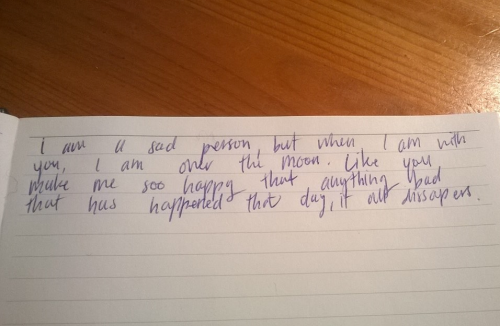 I am a sad person, but when I am with
you, I am over the moon. Like you
make me soo happy that anything bad
that has happened that day, it all dissapers.